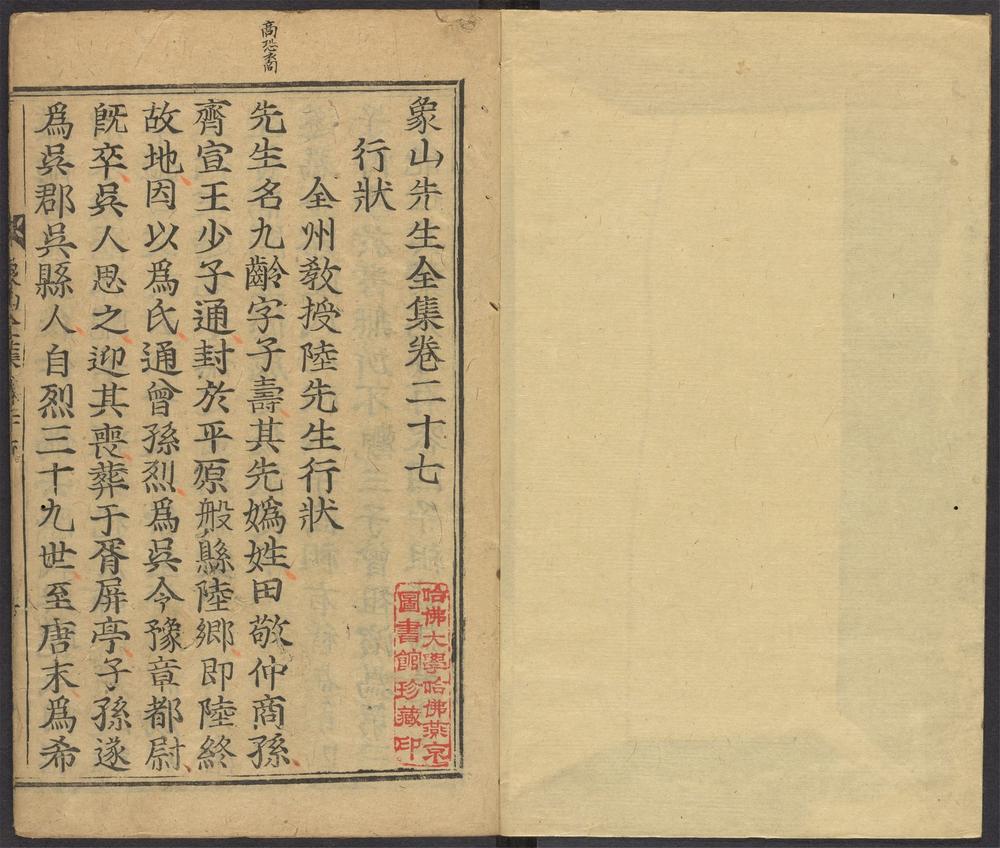 商恐裔
象山先生全集卷二十七
行狀
全州教授陸先生行狀
先生名九齡字子壽其先嬀姓田敬仲商孫
齊宣王少子通封於平原般縣陸鄉即陸終
故地因以爲氏通曾孫烈爲吳令豫章都尉
旣卒吳人思之迎其喪葬于胥屏亭子孫遂
爲吳郡吳縣人自烈三十九世至唐末爲希
象山全集
哈佛大學哈佛燕京
圖書館珍藏印